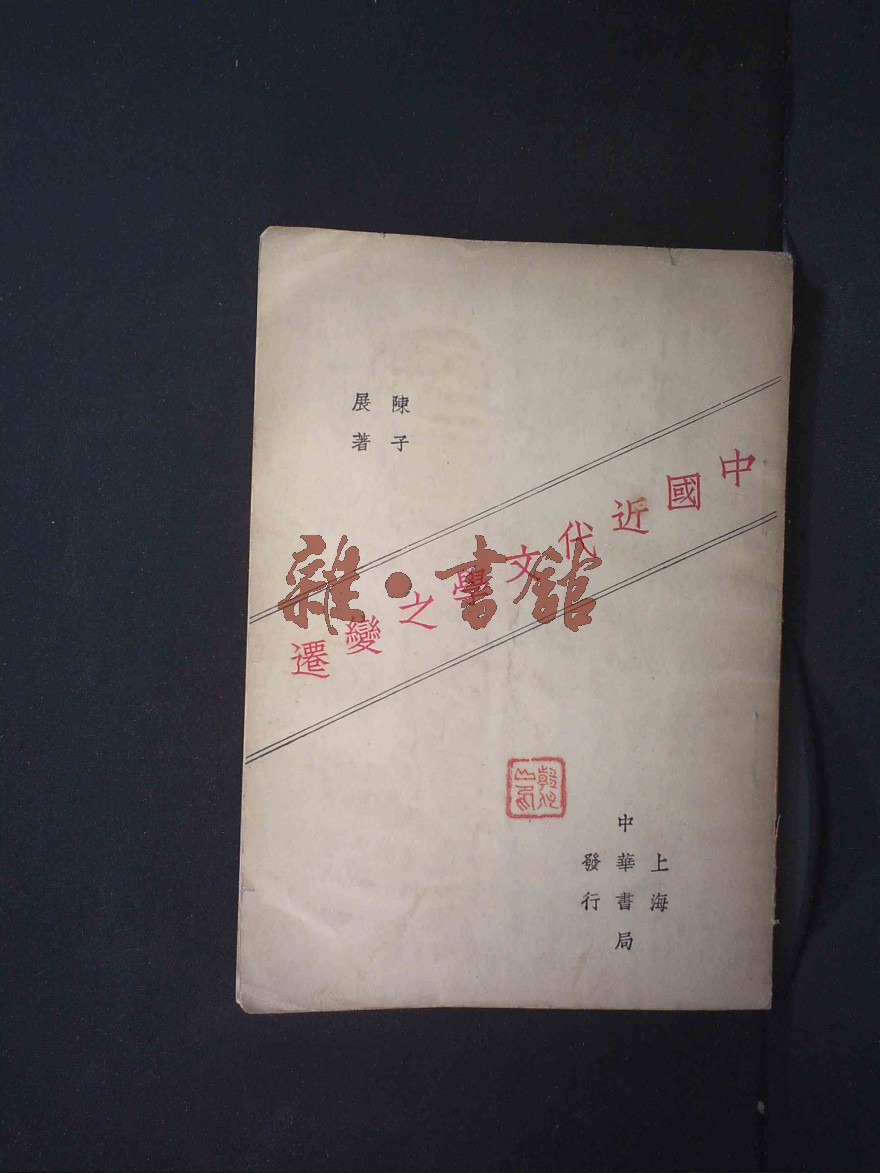 中國近代文學之變遷
陳子
展著
上海
中華書局
發行
雜·書館